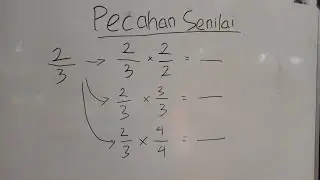 Pecahan Senilai
2/3 → 2/3 × 2/2 = __
→ 2/3 × 3/3 = __
→ 2/3 × 4/4 = __